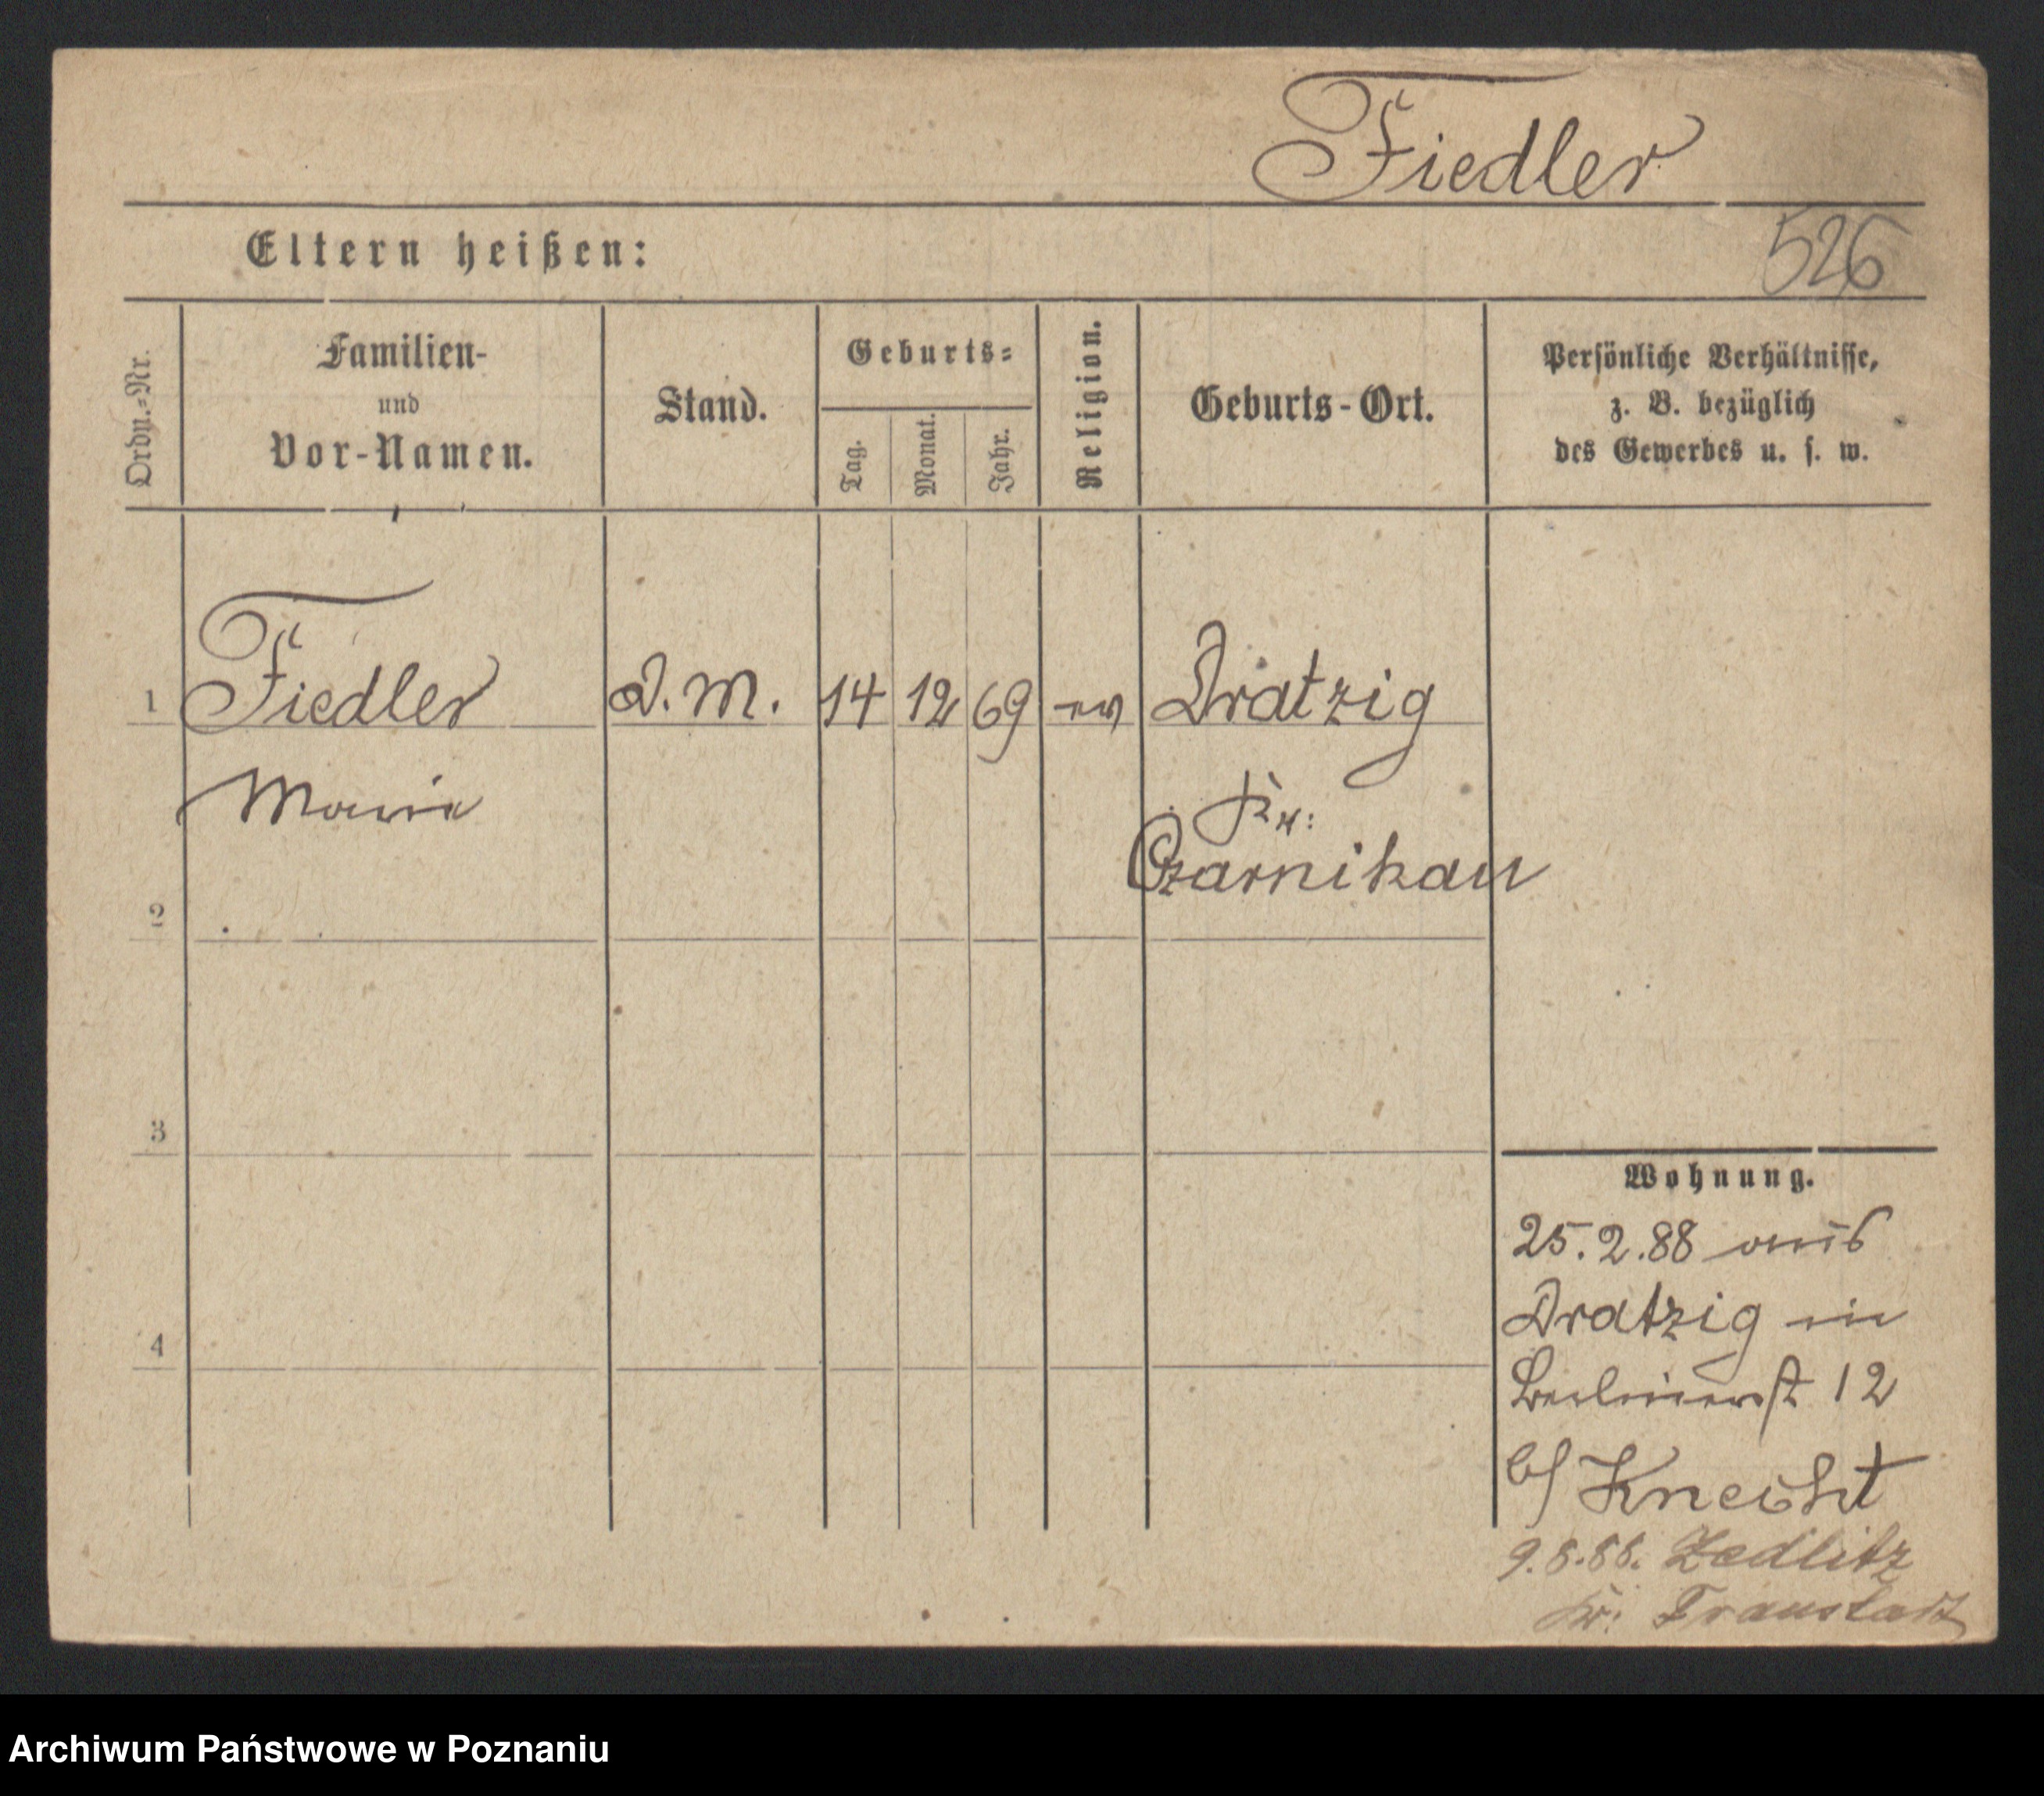 Fiedler
Eltern heißen:
526
Ordn.-Nr.
Familien-
und
Vor-Namen.
Stand.
Geburts-
Tag.
Monat.
Jahr.
Religion.
Geburts-Ort.
Persönliche Verhältnisse,
z. B. bezüglich
des Gewerbes u. s. w.
1 Fiedler D. M. 14 12 69 ev Dratzig
Marie
Kr:
Czarnikau
2
3
4
Wohnung.
25.2.88 aus
Dratzig in
Berlinerst 12
b/ Knecht
9.8.88. Zedlitz
Kr: Fraustadt
Archiwum Państwowe w Poznaniu